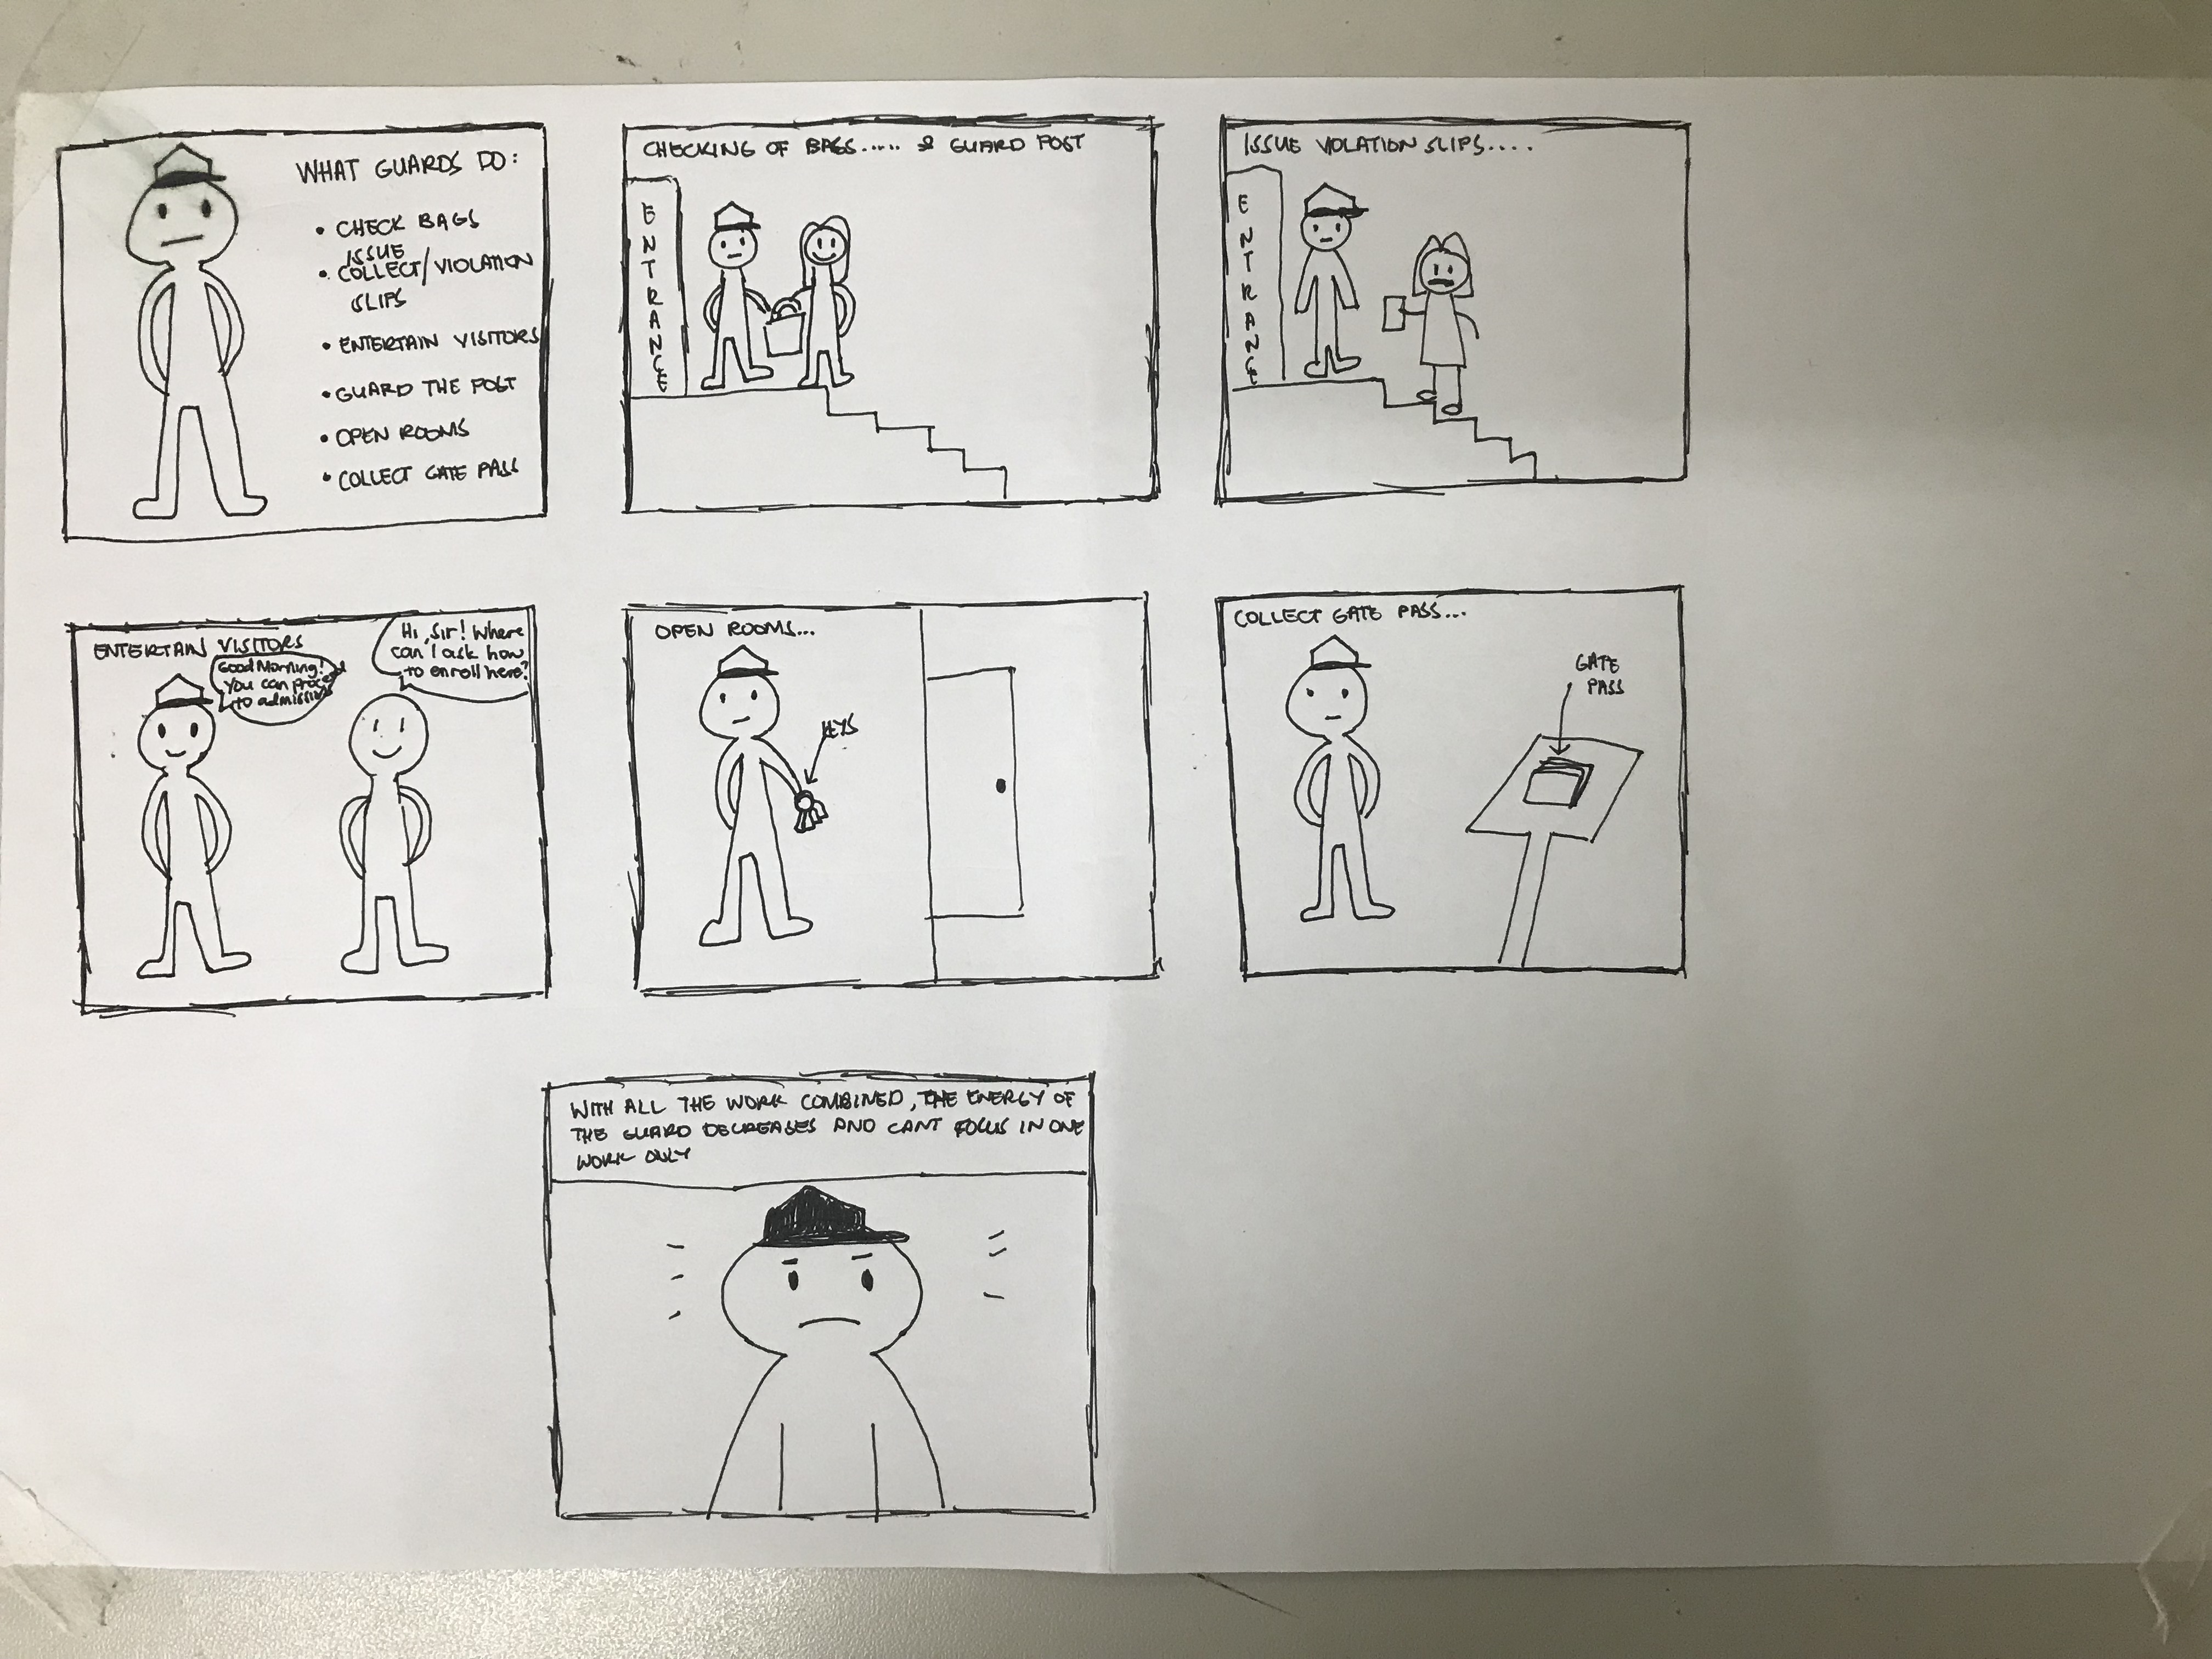 WHAT GUARDS DO:
• CHECK BAGS
• ISSUE
COLLECT/VIOLATION
SLIPS
• ENTERTAIN VISITORS
• GUARD THE POST
• OPEN ROOMS
• COLLECT GATE PASS
CHECKING OF BAGS..... & GUARD POST
ENTRANCE
ISSUE VIOLATION SLIPS.....
ENTRANCE
ENTERTAIN VISITORS
Hi, sir! Where
can I ask how
to enroll here?
Good Morning!
You can proceed
to admission
OPEN ROOMS...
KEYS
COLLECT GATE PASS....
GATE
PASS
WITH ALL THE WORK COMBINED, THE ENERGY OF
THE GUARD DECREASES AND CANT FOCUS IN ONE
WORK ONLY